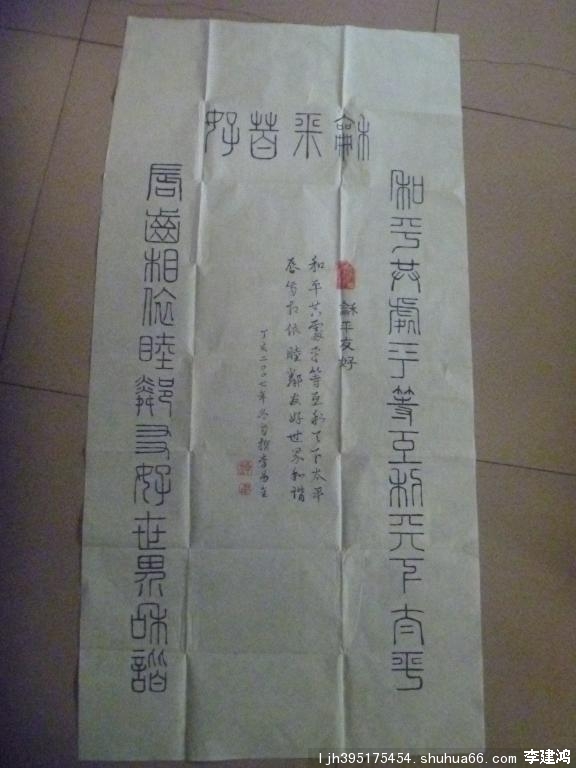 龢平友好
和平共處平等互利天下太平
唇齒相依睦鄰友好世界和諧
龢平友好
和平共處平等互利天下太平
唇齒相依睦鄰友好世界和諧
丁亥二〇〇七年冬月
ljh395175454.shuhua66.com 李建鸿